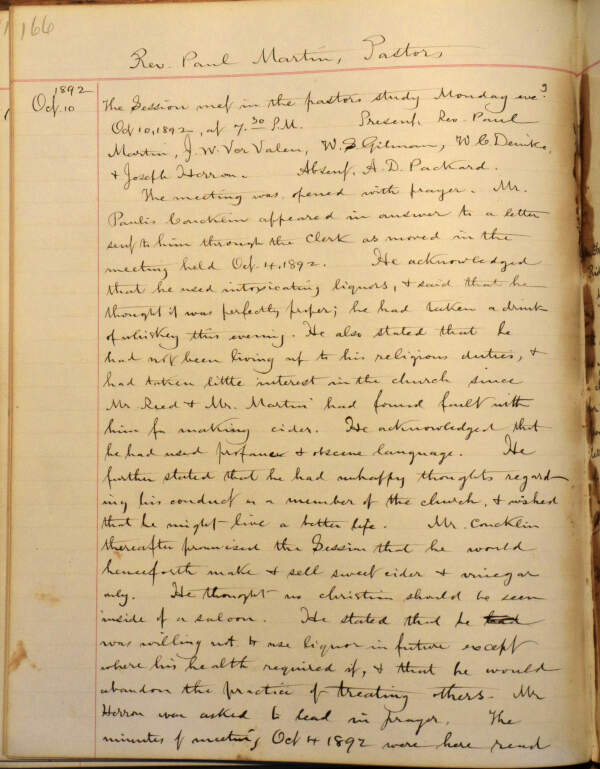 166
Rev. Paul Martin, Pastor,
1892
Oct. 10
The Session met in the pastors study Monday eve.
Oct 10, 1892, at 7.30 P.M. Present, Rev. Paul
Martin, J. W. Ver Valen, W. S. Gilman, W. C.
& Joseph Herron. Absent, A. D. Packard.
The meeting was opened with prayer. Mr.
Paulis Concklin appeared in answer to a letter
sent to him through the Clerk as moved in the
meeting held Oct. 4, 1892. He acknowledged
that he used intoxicating liquors, & said that he
thought it was perfectly proper; he had taken a drink
of whiskey this evening. He also stated that he
had not been living up to his religious duties, &
had taken little interest in the church since
Mr Reed & Mr. Martin had found fault with
him for making cider. He acknowledged that
he had used profane & obscene language. He
further stated that he had unhappy thoughts regard-
ing his conduct as a member of the church, & wished
that he might live a better life. Mr. Concklin
thereafter promised the Session that he would
henceforth make & sell sweet cider & vinegar
only. He thought no christian should be seen
inside of a saloon. He stated that he had
was willing not to use liquor in future except
where his health required it, & that he would
abandon the practice of treating others. Mr
Herron was asked to lead in prayer. The
minutes of meeting Oct 4 1892 were here read